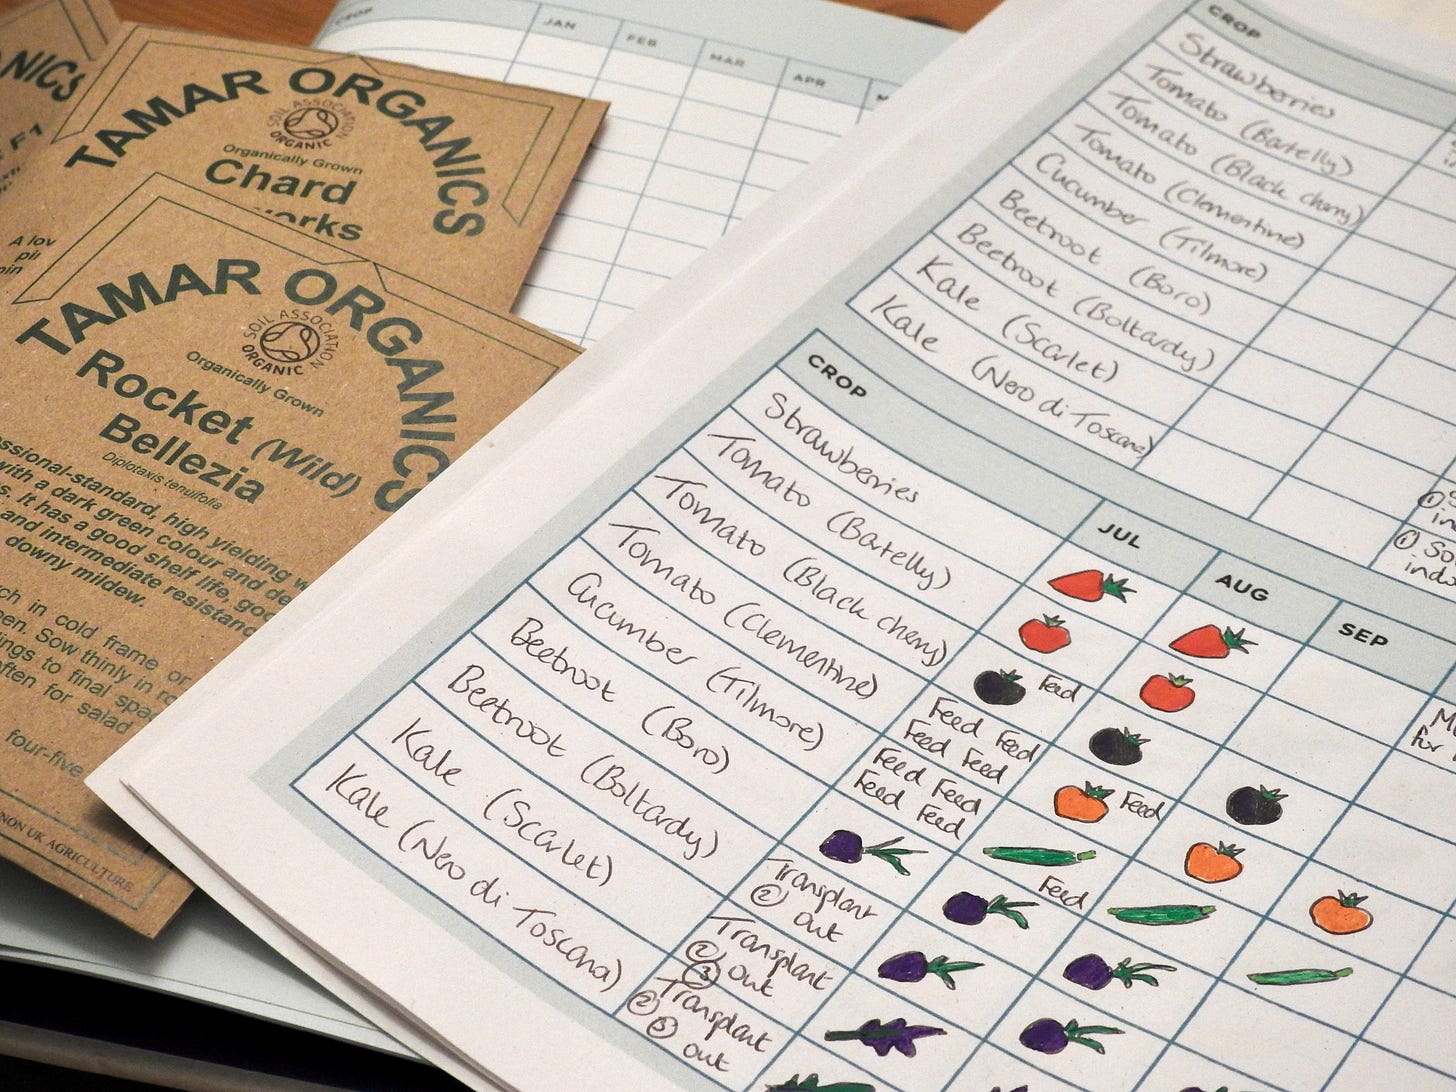 NICS
F1
A lov
TAMAR ORGANICS
SOIL ASSOCIATION
ORGANIC
Organically Grown
Chard
TAMAR ORGANICS
SOIL ASSOCIATION
ORGANIC
Organically Grown
Rocket (Wild)
Bellezia
Diplotaxis tenuifolia
essional-standard, high yielding
with a dark green colour and de
s. It has a good shelf life, goo
and intermediate resistanc
downy mildew.
in cold frame or
pen. Sow thinly in ro
lings to final spac
often for salad
four-five
NON UK AGRICULTURE
CROP JAN FEB MAR APR M
CROP
Strawberries
Tomato (Bartelly)
Tomato (Black cherry)
Tomato (Clementine)
Cucumber (Tilmore)
Beetroot (Boro)
Beetroot (Boltardy)
Kale (Scarlet)
Kale (Nero di Toscana)
CROP JUL AUG SEP
Strawberries
Tomato (Bartelly)
Tomato (Black cherry)
Feed
Tomato (Clementine)
Feed Feed
Feed Feed
Feed
Cucumber (Tilmore)
Feed Feed
Feed Feed
Feed
Beetroot (Boro)
Beetroot (Boltardy)
Transplant
② out
Kale (Scarlet)
Transplant
② ③ out
Kale (Nero di Toscana)
Transplant
② ③ out